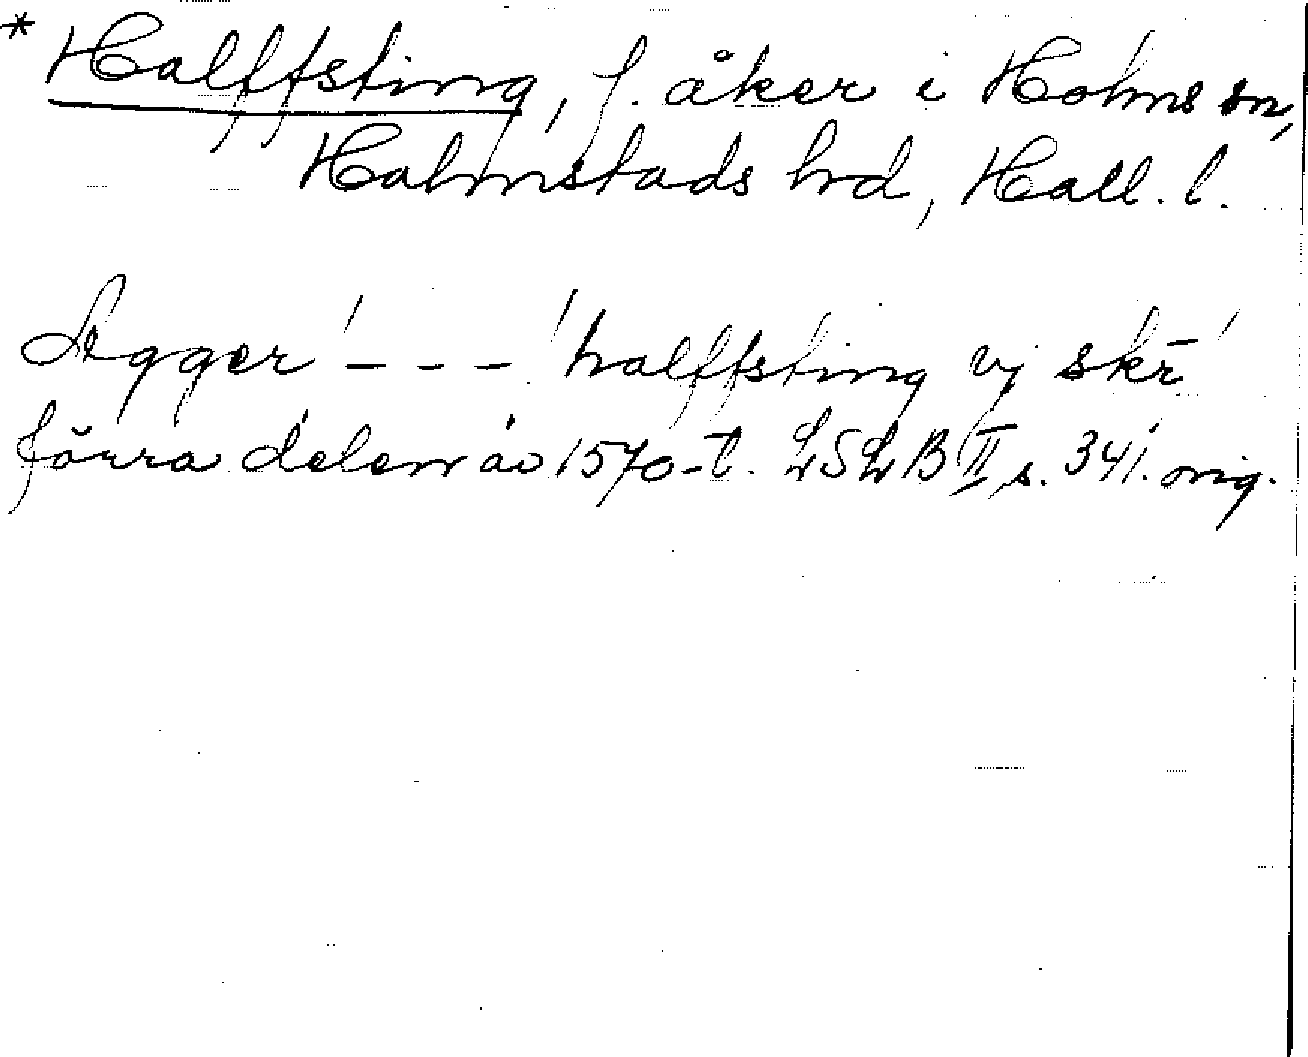 * Halffsting, f. åker i Holms sn,
Halmstads hrd, Hall. l.
Agger - - - halffsting vj skr̄
förra delen av 1570-t. LSLB II s. 341. orig.